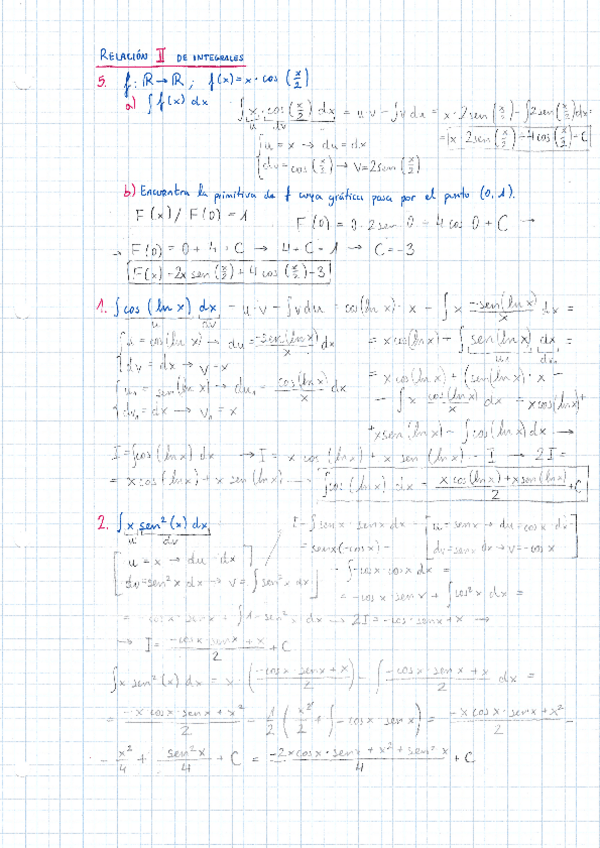 RELACIÓN II DE INTEGRALES
5. f: ℝ → ℝ; f(x) = x · cos (x/2)
a) ∫ f(x) dx
∫ x · cos (x/2) dx = u·v - ∫ v du = x · 2 sen (x/2) - ∫ 2 sen (x/2) dx =
u dv
u = x → du = dx
= x · 2 sen (x/2) + 4 cos (x/2) + C
dv = cos (x/2) → v = 2 sen (x/2)
b) Encuentra la primitiva de f cuya gráfica pasa por el punto (0, 1).
F(x) / F(0) = 1
F(0) = 0 · 2 sen 0 + 4 cos 0 + C →
→ F(0) = 0 + 4 + C → 4 + C = 1 → C = -3
F(x) = 2x sen (x/2) + 4 cos (x/2) - 3
1. ∫ cos (ln x) dx = u·v - ∫ v du = cos(ln x) · x - ∫ x · -sen(ln x)/x dx =
u dv
u = cos(ln x) → du = -sen(ln x)/x dx
dv = dx → v = x
= x cos(ln x) + ∫ sen(ln x) dx =
u₁ dv₁
u₁ = sen(ln x) → du₁ = cos(ln x)/x dx
dv₁ = dx → v₁ = x
= x cos(ln x) + (sen(ln x) · x -
- ∫ x · cos(ln x)/x dx = x cos(ln x) +
+ x sen(ln x) - ∫ cos(ln x) dx →
I = ∫ cos(ln x) dx → I = x cos(ln x) + x sen(ln x) - I → 2I =
= x cos(ln x) + x sen(ln x) → ∫ cos(ln x) dx = x cos(ln x) + x sen(ln x)/2 + C
2. ∫ x sen²(x) dx
u dv
u = x → du = dx
dv = sen² x dx → v = ∫ sen² x dx
I = ∫ sen x · sen x dx
= sen x (-cos x) -
u = sen x → du = cos x · dx
dv = sen x dx → v = -cos x
- ∫ -cos x · cos x dx =
= -cos x · sen x + ∫ cos² x dx =
= -cos x · sen x + ∫ 1 - sen² x dx → 2I = -cos x · sen x + x →
→ I = -cos x · sen x + x/2 + C
∫ x sen²(x) dx = x · (-cos x · sen x + x/2) - ∫ -cos x · sen x + x/2 dx =
= -x cos x · sen x + x²/2 - 1/2 (x²/2 + ∫ -cos x · sen x) = -x cos x · sen x + x²/2 -
- x²/4 + sen² x/4 + C = -2x cos x · sen x + x² + sen² x/4 + C